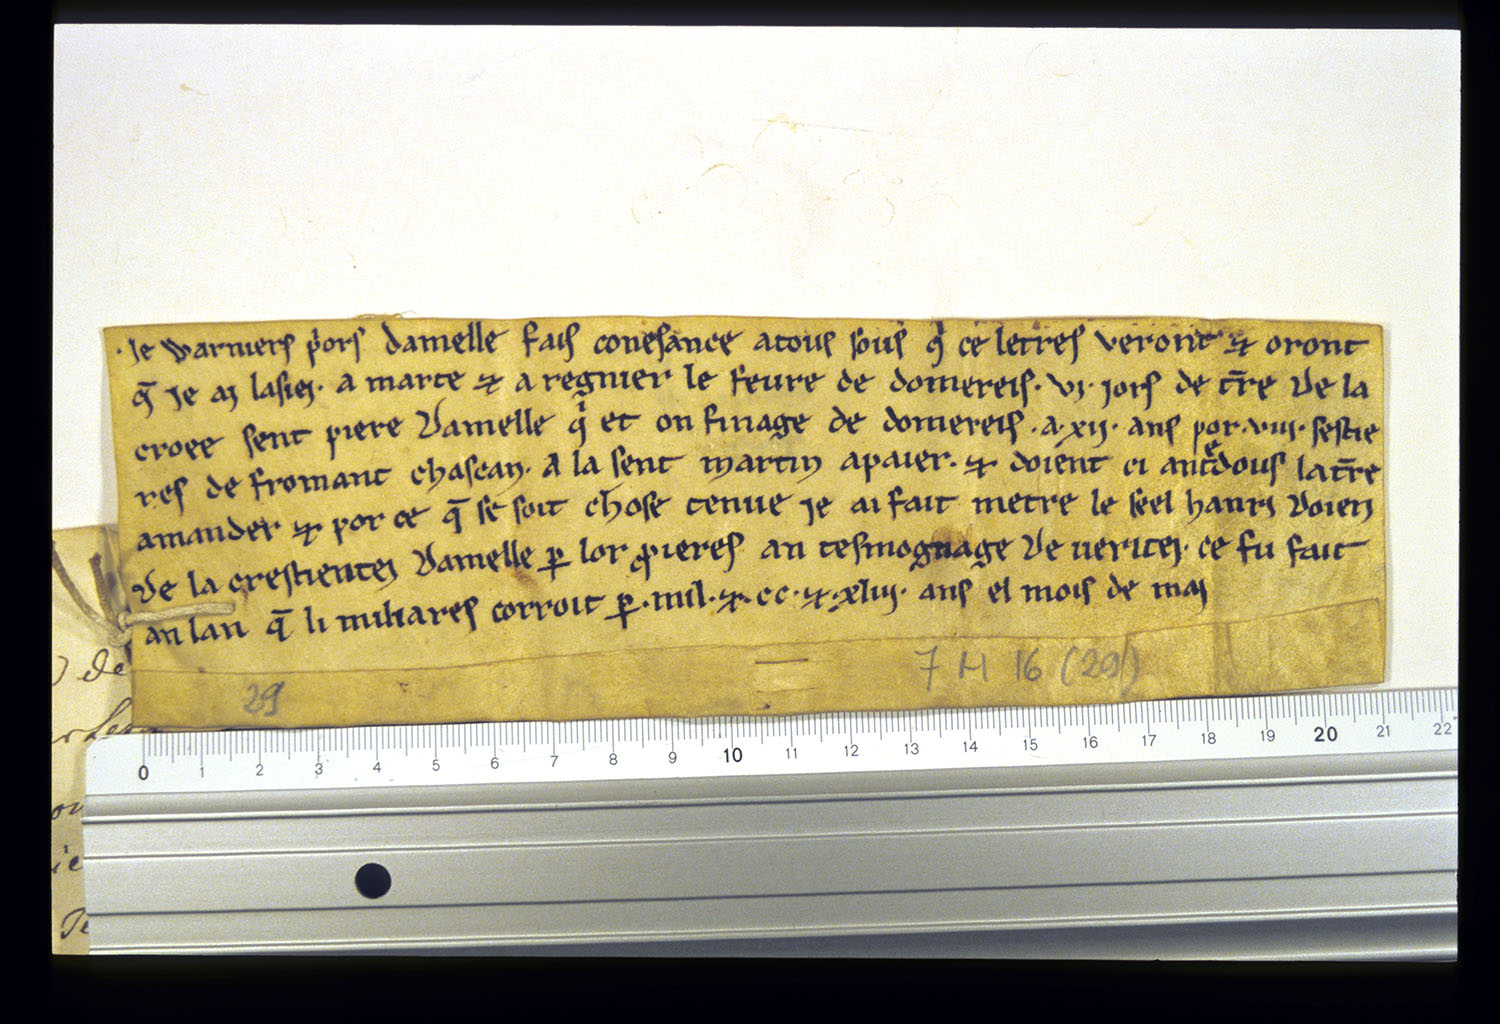 ·Je warniers p̾ors damelle fais conesance a tous sous q̾ ce letres veront ⁊ oront
q̄ Je aj lasiej· a marte ⁊ a regnier le feure de domereis· vj· jors de t̄re de la
croee sent piere damelle q̾ et on finage de domereis ·a·xij· ans por·viii· sestie
res de fromant chascan· A la sent martin apaier· ⁊ doient ci antredous la t̄re
amander ⁊ por ce q̄ se soit chose tenue je ai fait metre le seel hanrj doien
de la crestientej damelle ꝑ lor ꝓieres an tesmognage de veritej· ce fu fait
an lan q̄ li miliares corroit ꝑ·mil·⁊·cc·⁊·xliij· ans el mois de maj
29
7 H 16 (29)
de
0 1 2 3 4 5 6 7 8 9 10 11 12 13 14 15 16 17 18 19 20 21 22